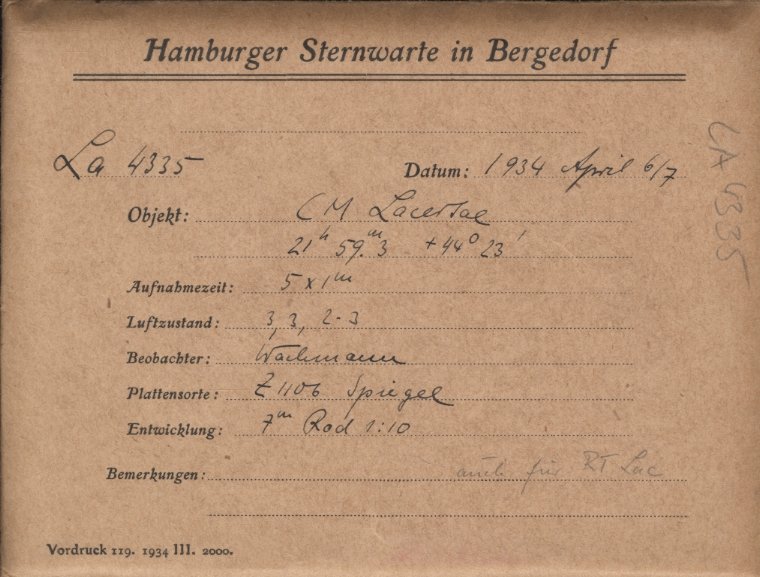 Hamburger Sternwarte in Bergedorf
La 4335 Datum: 1934 April 6/7
LA 4335
Objekt: CM Lacertae
21ʰ 59.ᵐ3 +44° 23'
Aufnahmezeit: 5 x 1ᵐ
Luftzustand: 3, 3, 2-3
Beobachter: Wachmann
Plattensorte: Z 1106 Spiegel
Entwicklung: 7ᵐ Rod 1:10
Bemerkungen: auch für RT Lac
Vordruck 119. 1934 III. 2000.